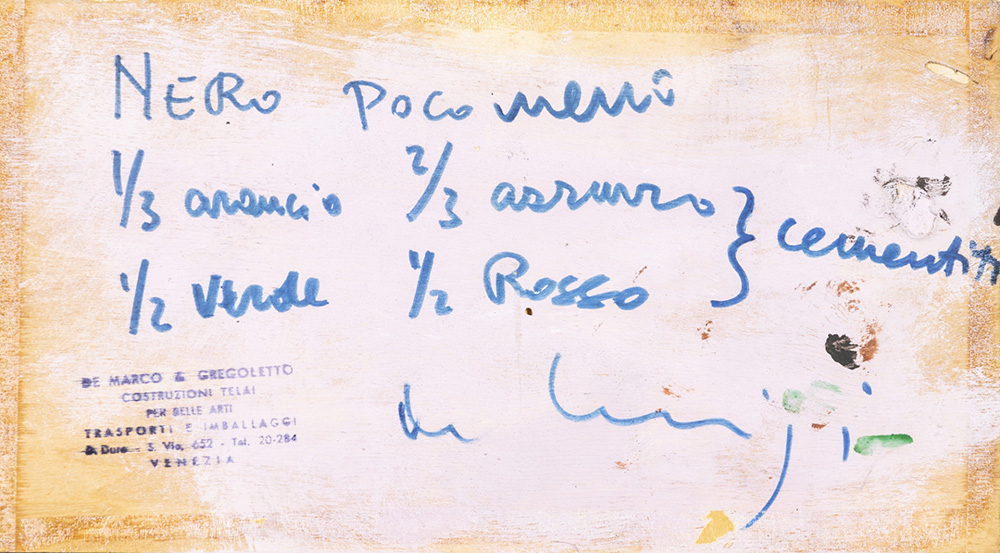 NERO POCO meno
1/3 arancio 2/3 azzurro
1/2 verde 1/2 Rosso } cementite
DE MARCO & GREGOLETTO
COSTRUZIONI TELAI
PER BELLE ARTI
TRASPORTI E IMBALLAGGI
D. Duro - S. Vio, 652 - Tel. 20-284
VENEZIA
de Luigi